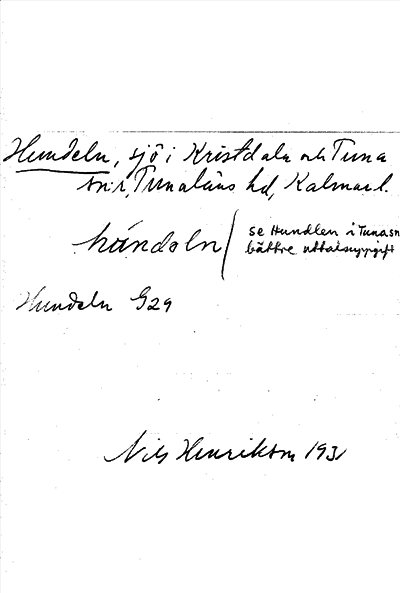 Hundeln, sjö i Kristdala och Tuna
sn:r, Tunaläns hd, Kalmar l.
húndoln
se Hundlen i Tuna sn
bättre uttalsuppgift
Hundeln G29
Nils Henrikson 1931